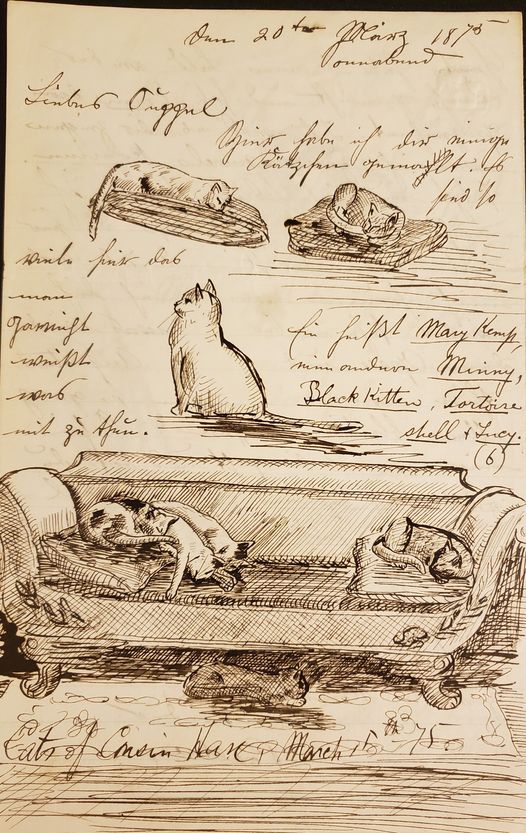 den 20ten März 1875
Sonnabend
Liebes
Hier habe ich dir einige
Kätzchen gemahlt. Es
sind so
viele hier das
man
garnicht
weißt
was
mit zu thun.
Ein heißt Mary Kemp,
einen anderen Minny,
Black Kitten, Tortoise
shell & Lucy.
(6)
Cats of Cousin March 15th 75